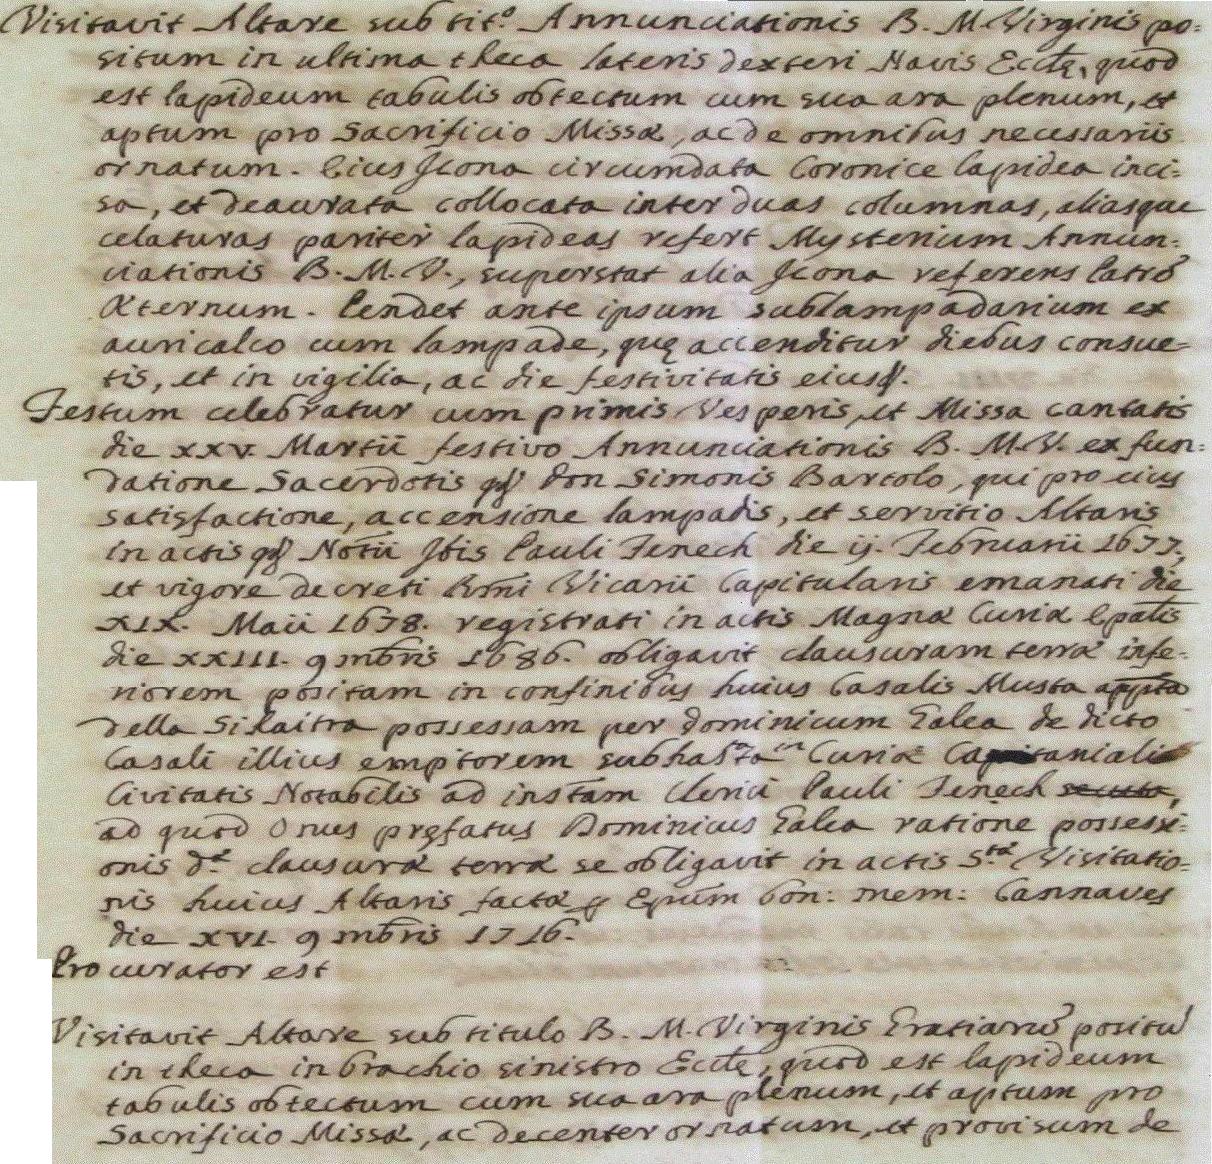 Visitavit Altare sub tit.º Annunciationis B. M. Virginis po-
situm in ultima theca lateris dexteri Navis Eccłę, quod
est lapideum tabulis obtectum cum sua ara plenum, et
aptum pro Sacrificio Missæ, ac de omnibus necessariis
ornatum. Eius Icona circumdata Coronice lapidea inci-
sa, et deaurata collocata inter duas columnas, aliasque
celaturas pariter lapideas refert Mysterium Annun-
ciationis B. M. V., superstat alia Icona referens Patrē
Æternum. Pendet ante ipsum sublampadarium ex
auricalco cum lampade, quę accenditur diebus consue-
tis, et in vigilia, ac die festivitatis eiusđ.
Festum celebratur cum primis Vesperis, et Missa cantatis
die XXV. Martii festivo Annunciationis B. M. V. ex fun-
datione Sacerdotis qđ Don Simonis Bartolo, qui pro eius
satisfactione, accensione lampadis, et servitio Altaris
in actis qđ Notii Jõis Pauli Fenech die ij. Februarii 1677,
et vigore decreti Rmi Vicarii Capitularis emanati die
XIX. Maii 1678. registrati in actis Magnæ Curiæ Epalis
die XXIII. 9mbris 1686. obligavit clausuram terræ infe-
riorem positam in confinibus huius Casalis Musta appta
della Sikaitra possessam per Dominicum Galea de dicto
Casali illius emptorem subhasta in Curiæ Capitanialis
Civitatis Notabilis ad instam Clerici Pauli Fenech secuta,
ad quod Onus pręfatus Dominicus Galea ratione possessi-
onis d.æ clausuræ terræ se obligavit in actis S.tæ Visitatio-
nis huius Altaris factæ p Epum bon: mem: Cannaves
die XVI. 9mbris 1716.
Procurator est
Visitavit Altare sub titulo B. M. Virginis Gratiarū positū
in theca in brachio sinistro Eccłę, quod est lapideum
tabulis obtectum cum sua ara plenum, et aptum pro
Sacrificio Missæ, ac decenter ornatum, et provisum de